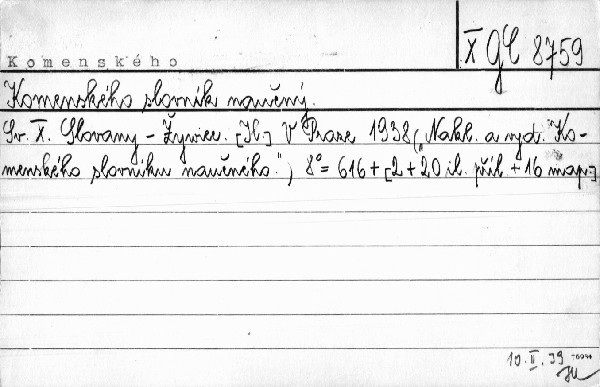 X GC 8759
Komenského
Komenského slovník naučný.
Sv. X. Slovany - Żywiec. [Il.] V Praze 1938 („Nakl. a vyd. Ko-
menského slovníku naučného.“) 8° = 616 + [2 + 20 il. příl. + 16 map.]
10. II. 39